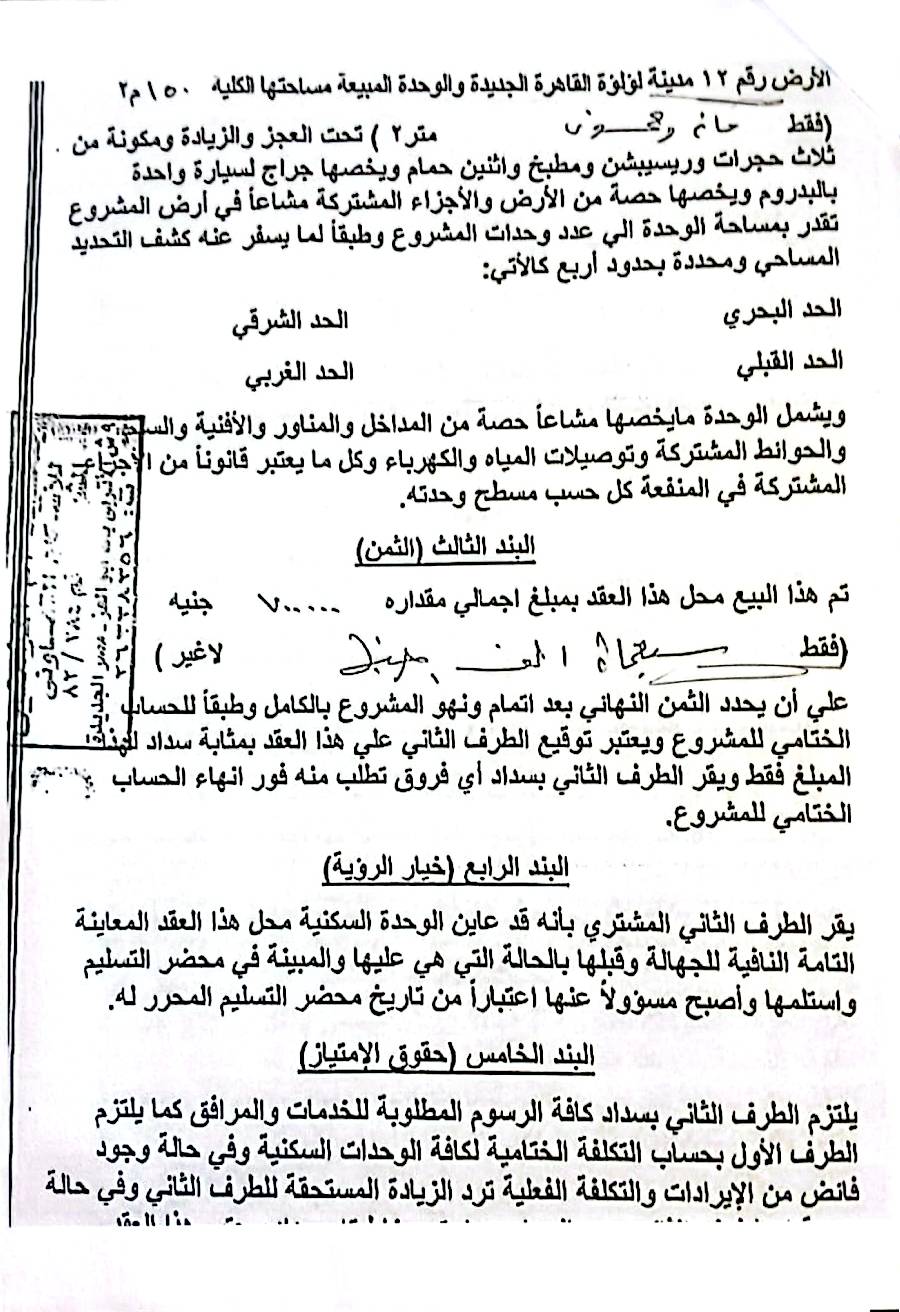 الأرض رقم ١٢ مدينة لؤلؤة القاهرة الجديدة والوحدة المبيعة مساحتها الكلية ١٥٠ م٢
(فقط مائة وخمسون متر٢ ) تحت العجز والزيادة ومكونة من
ثلاث حجرات وريسيبشن ومطبخ واثنين حمام ويخصها جراج لسيارة واحدة
بالبدروم ويخصها حصة من الأرض والأجزاء المشتركة مشاعاً في أرض المشروع
تقدر بمساحة الوحدة الي عدد وحدات المشروع وطبقاً لما يسفر عنه كشف التحديد
المساحي ومحددة بحدود أربع كالأتي:
الحد البحري الحد الشرقي
الحد القبلي الحد الغربي
ويشمل الوحدة مايخصها مشاعاً حصة من المداخل والمناور والأفنية
والحوائط المشتركة وتوصيلات المياه والكهرباء وكل ما يعتبر قانوناً من
المشتركة في المنفعة كل حسب مسطح وحدته.
البند الثالث (الثمن)
تم هذا البيع محل هذا العقد بمبلغ اجمالي مقداره ٧٠٠٠٠٠ جنيه
(فقط سبعمائة الف جنيه لاغير )
علي أن يحدد الثمن النهائي بعد اتمام ونهو المشروع بالكامل وطبقاً للحساب
الختامي للمشروع ويعتبر توقيع الطرف الثاني علي هذا العقد بمثابة سداد لهذا
المبلغ فقط ويقر الطرف الثاني بسداد أي فروق تطلب منه فور انهاء الحساب
الختامي للمشروع.
البند الرابع (خيار الرؤية)
يقر الطرف الثاني المشتري بأنه قد عاين الوحدة السكنية محل هذا العقد المعاينة
التامة النافية للجهالة وقبلها بالحالة التي هي عليها والمبينة في محضر التسليم
واستلمها وأصبح مسؤولاً عنها اعتباراً من تاريخ محضر التسليم المحرر له.
البند الخامس (حقوق الإمتياز)
يلتزم الطرف الثاني بسداد كافة الرسوم المطلوبة للخدمات والمرافق كما يلتزم
الطرف الأول بحساب التكلفة الختامية لكافة الوحدات السكنية وفي حالة وجود
فائض من الإيرادات والتكلفة الفعلية ترد الزيادة المستحقة للطرف الثاني وفي حالة